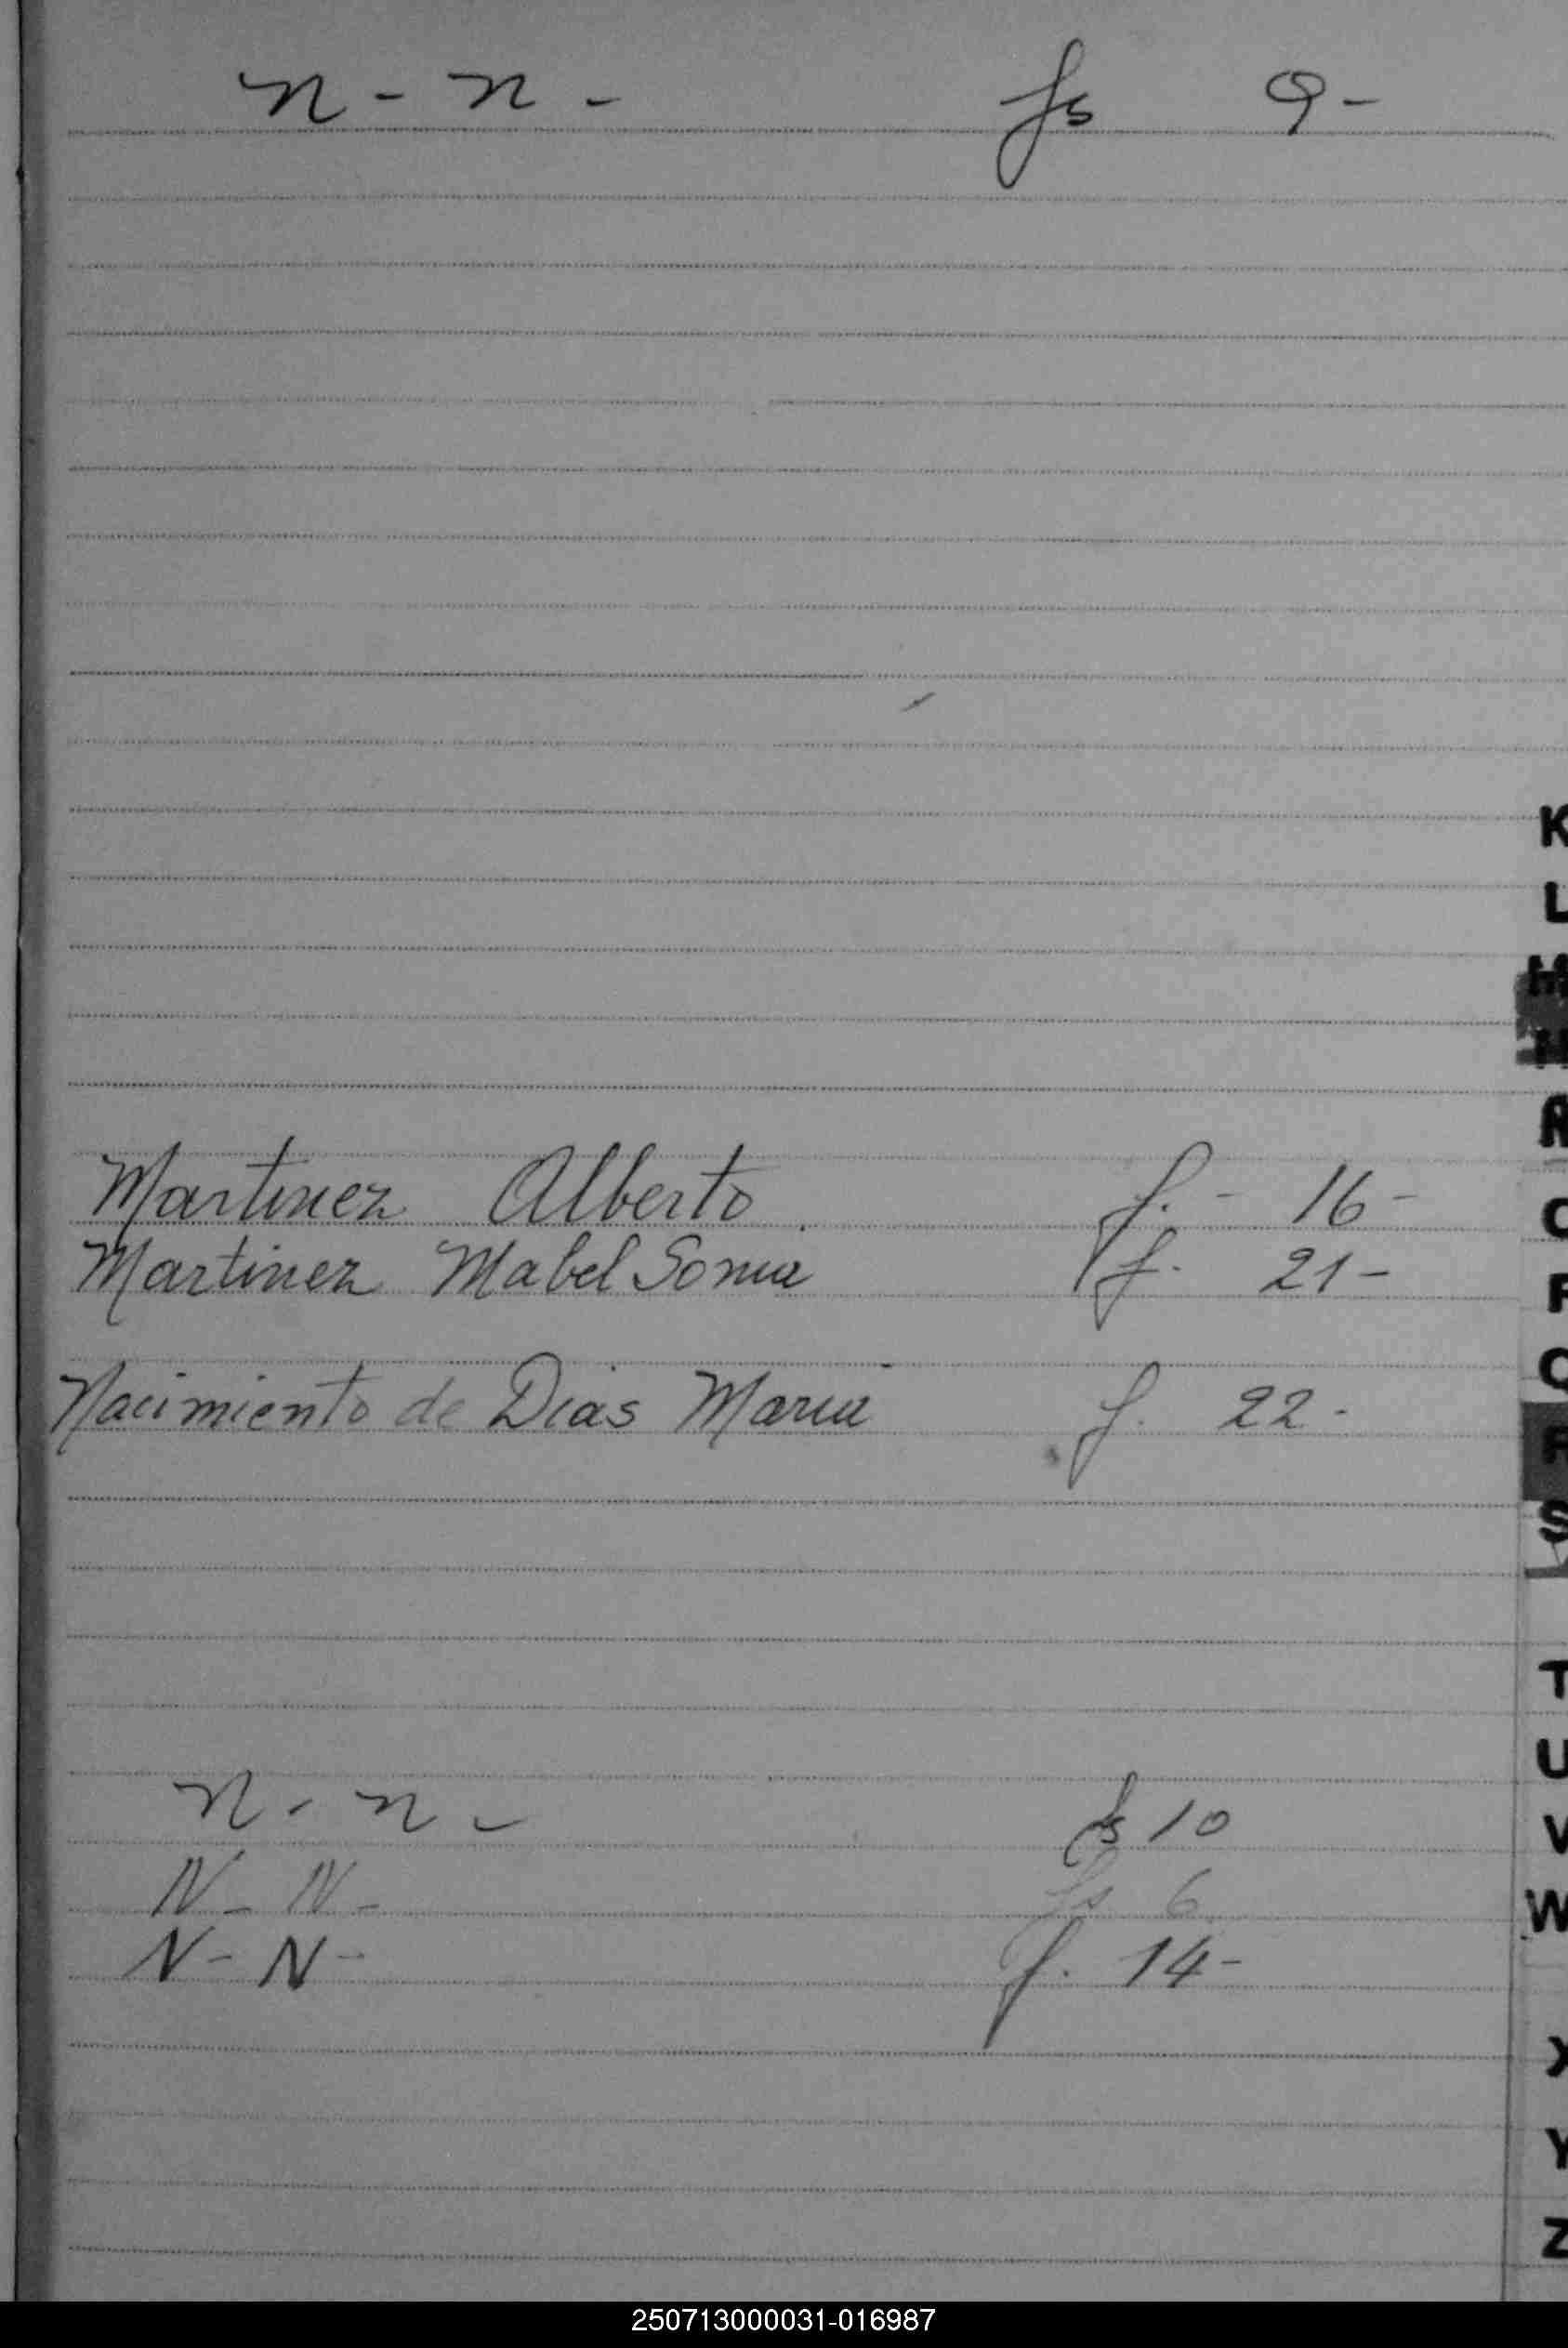 n - n - fs 9-
Martinez Alberto f. - 16 -
Martinez Mabel Sonia f. 21 -
Nacimiento de Dias Maria f. 22 -
n - n - fs 10
N - N - fs 6
N - N - f. 14 -
K
L
M
N
Ñ
O
P
Q
R
S
T
U
V
W
X
Y
Z
250713000031-016987